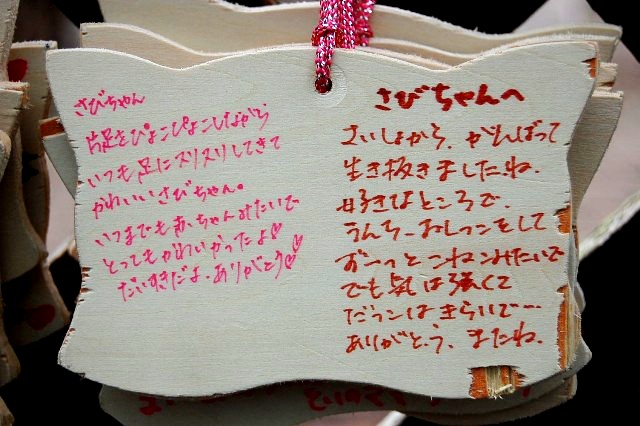 さびちゃん
片足をぴょこぴょこしながら
いつも足にスリスリしてきて
かわいいさびちゃん。
いつまでも赤ちゃんみたいで
とってもかわいかったよ♡
だいすきだよ。ありがとう♡♡
さびちゃんへ
さいしょから、がんばって
生き抜きましたね。
好きなところで、
うんち、おしっこをして
おーっとこねこみたいで
でも気は強くて
だっこはきらいで…
ありがとう、またね。